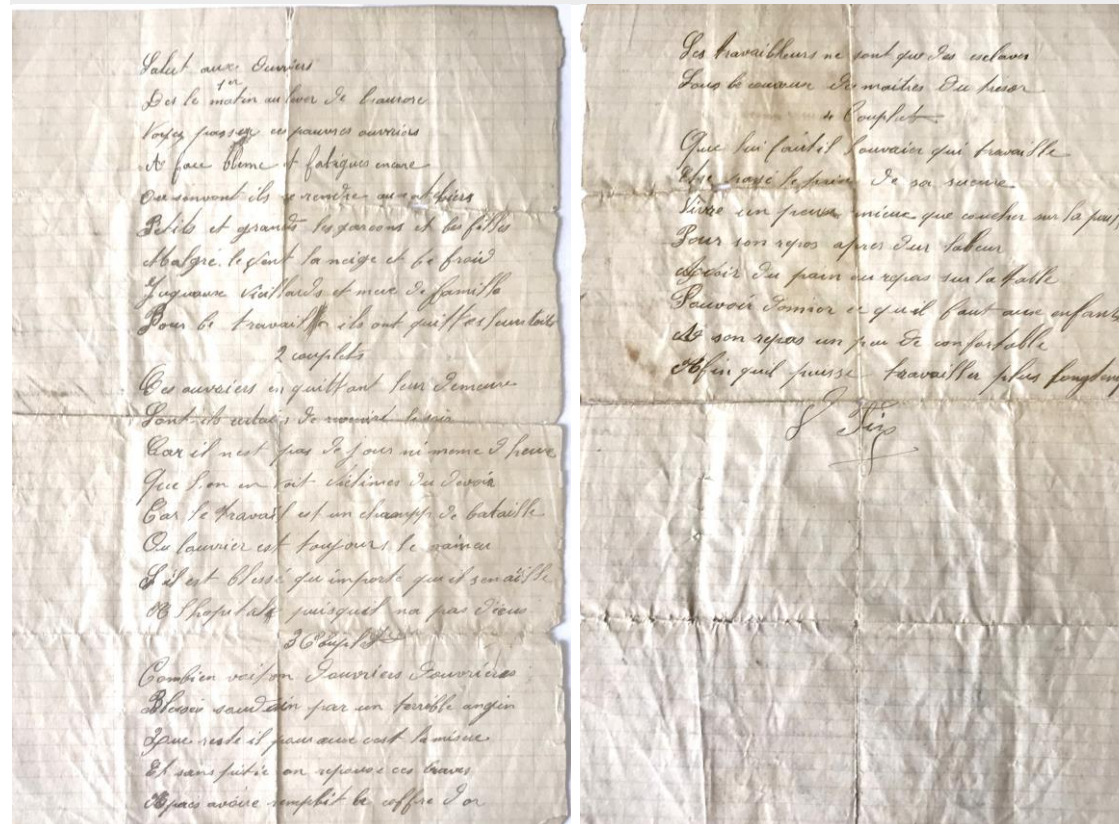 Salut aux Ouvriers
1er
Des le matin au lever de l'aurore
Voyez passer ces pauvres ouvriers
A face blême et fatigues encore
Ou sonvont ils se rendre aux ateliers
Petits et grands les garcons et les filles
Malgré le vent la neige et le froid
Jusquaux vieillards et mere de famille
Pour le travail ils ont quittes leurs toits
2 couplets
Ces ouvriers en quittant leur demeure
Sont ils certains de le soir
Car il nest pas de jour ni meme d heure
Que l'on en soit victimes du devoir
Car le travail est un champ de bataille
Ou louvrier est toujours le vaincu
S il est blessé qu importe qu il senaille
A l hopital puisquil na pas d'ecus
3 Couplet
Combien voit on douvriers douvrières
Blessés soudain par un terrible angin
Que reste il pour aux cest la misère
Et sans pitié on repousse ces braves
Apres avoire remplit le coffre d or
Les travailleurs ne sont que des esclaves
Sous le des maitres du tresor
4 Couplet
Que lui faut il louvrier qui travaille
Etre payé le prix de sa sueure
Vivre un peux mieux que coucher sur la
Pour son repos apres dur labeur
Avoir du pain au repas sur la table
Pouvoir donner ce qu il faut aux enfants
A son repos un peu de confortable
Afin quil puisse travailler plus longtemps
Fin